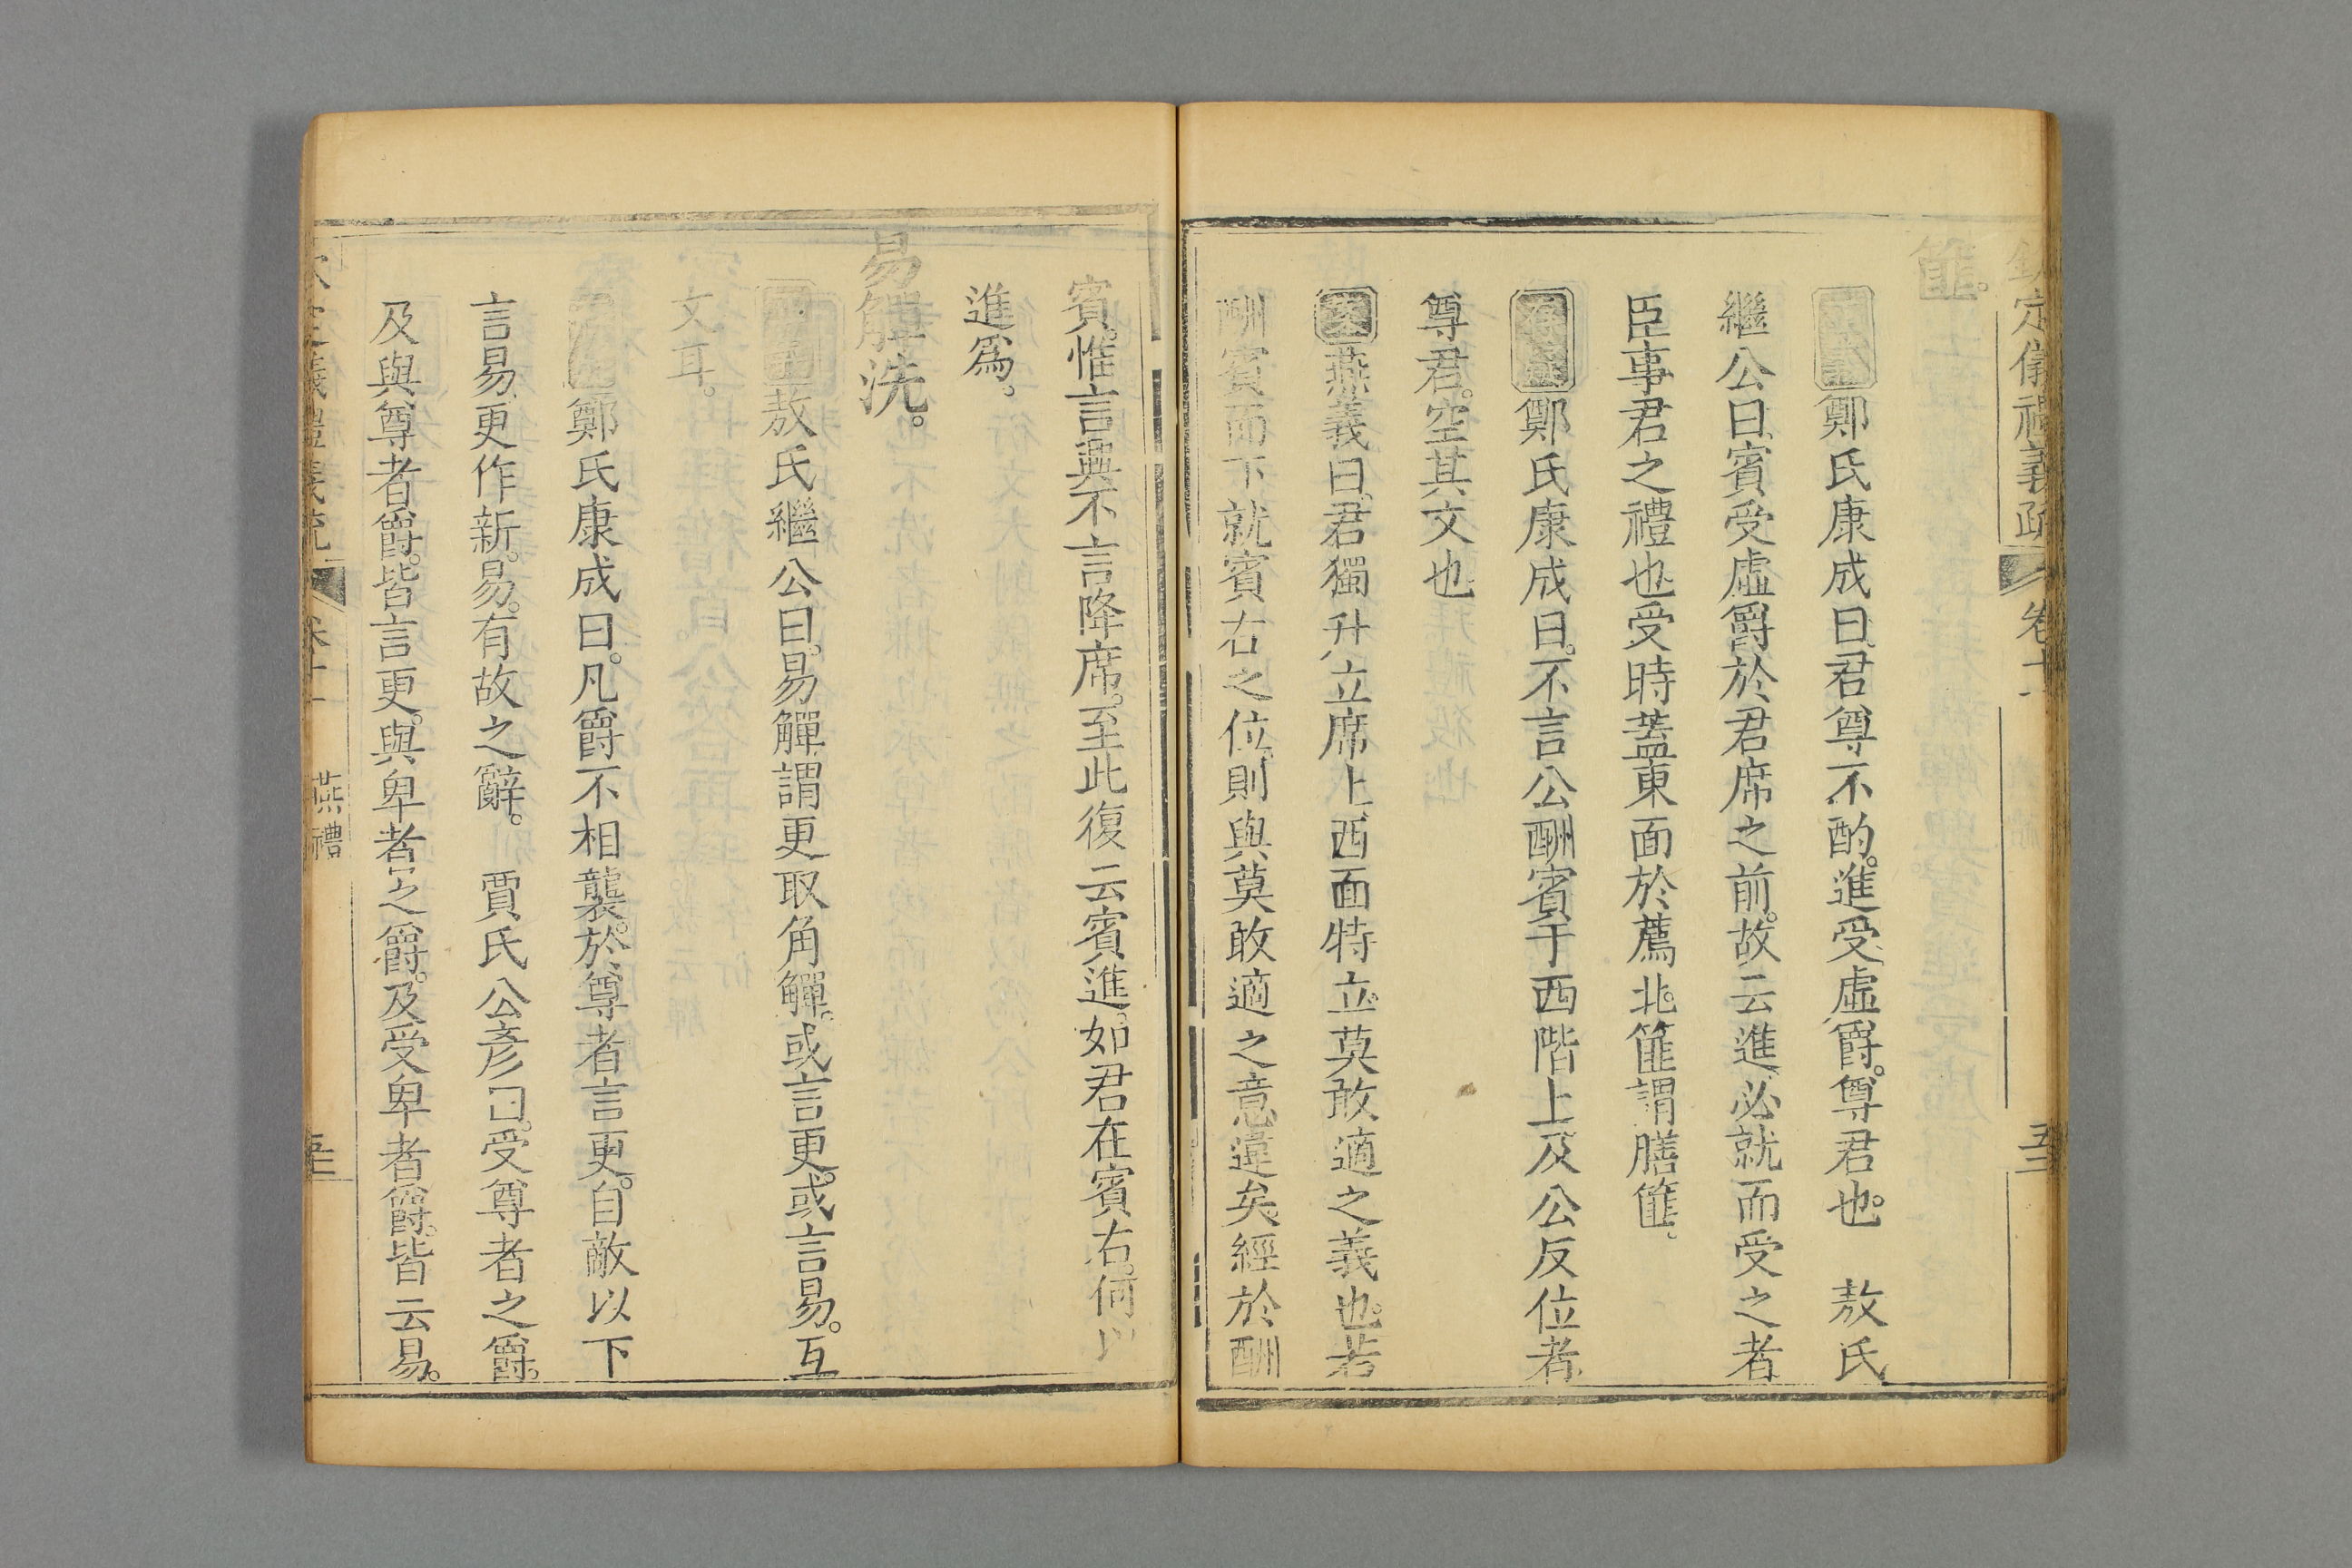 欽定儀禮義疏 卷十一 五三
篚。
鄭氏康成曰。君尊不酌。進受虛爵。尊君也。 敖氏
繼公曰。賓受虛爵於君席之前。故云進。必就而受之者
臣事君之禮也受時蓋東面於薦北。篚謂膳篚。
鄭氏康成曰。不言公酬賓于西階上及公反位者
尊君。空其文也
案燕義曰。君獨升立席上。西面特立。莫敢適之義也。若
酬賓而下就賓右之位。則與莫敢適之意違矣。經於酬
賓。惟言興不言降席。至此復云賓進。如君在賓右。何以
進為。
易觶洗。
敖氏繼公曰。易觶。謂更取角觶。或言更。或言易。互
文耳。
鄭氏康成曰。凡爵不相襲。於尊者言更。自敵以下
言易。更作新。易。有故之辭。 賈氏公彥曰。受尊者之爵。
及與尊者爵。皆言更。與卑者之爵。及受卑者爵。皆云易。
欽定儀禮義疏 卷十一 燕禮